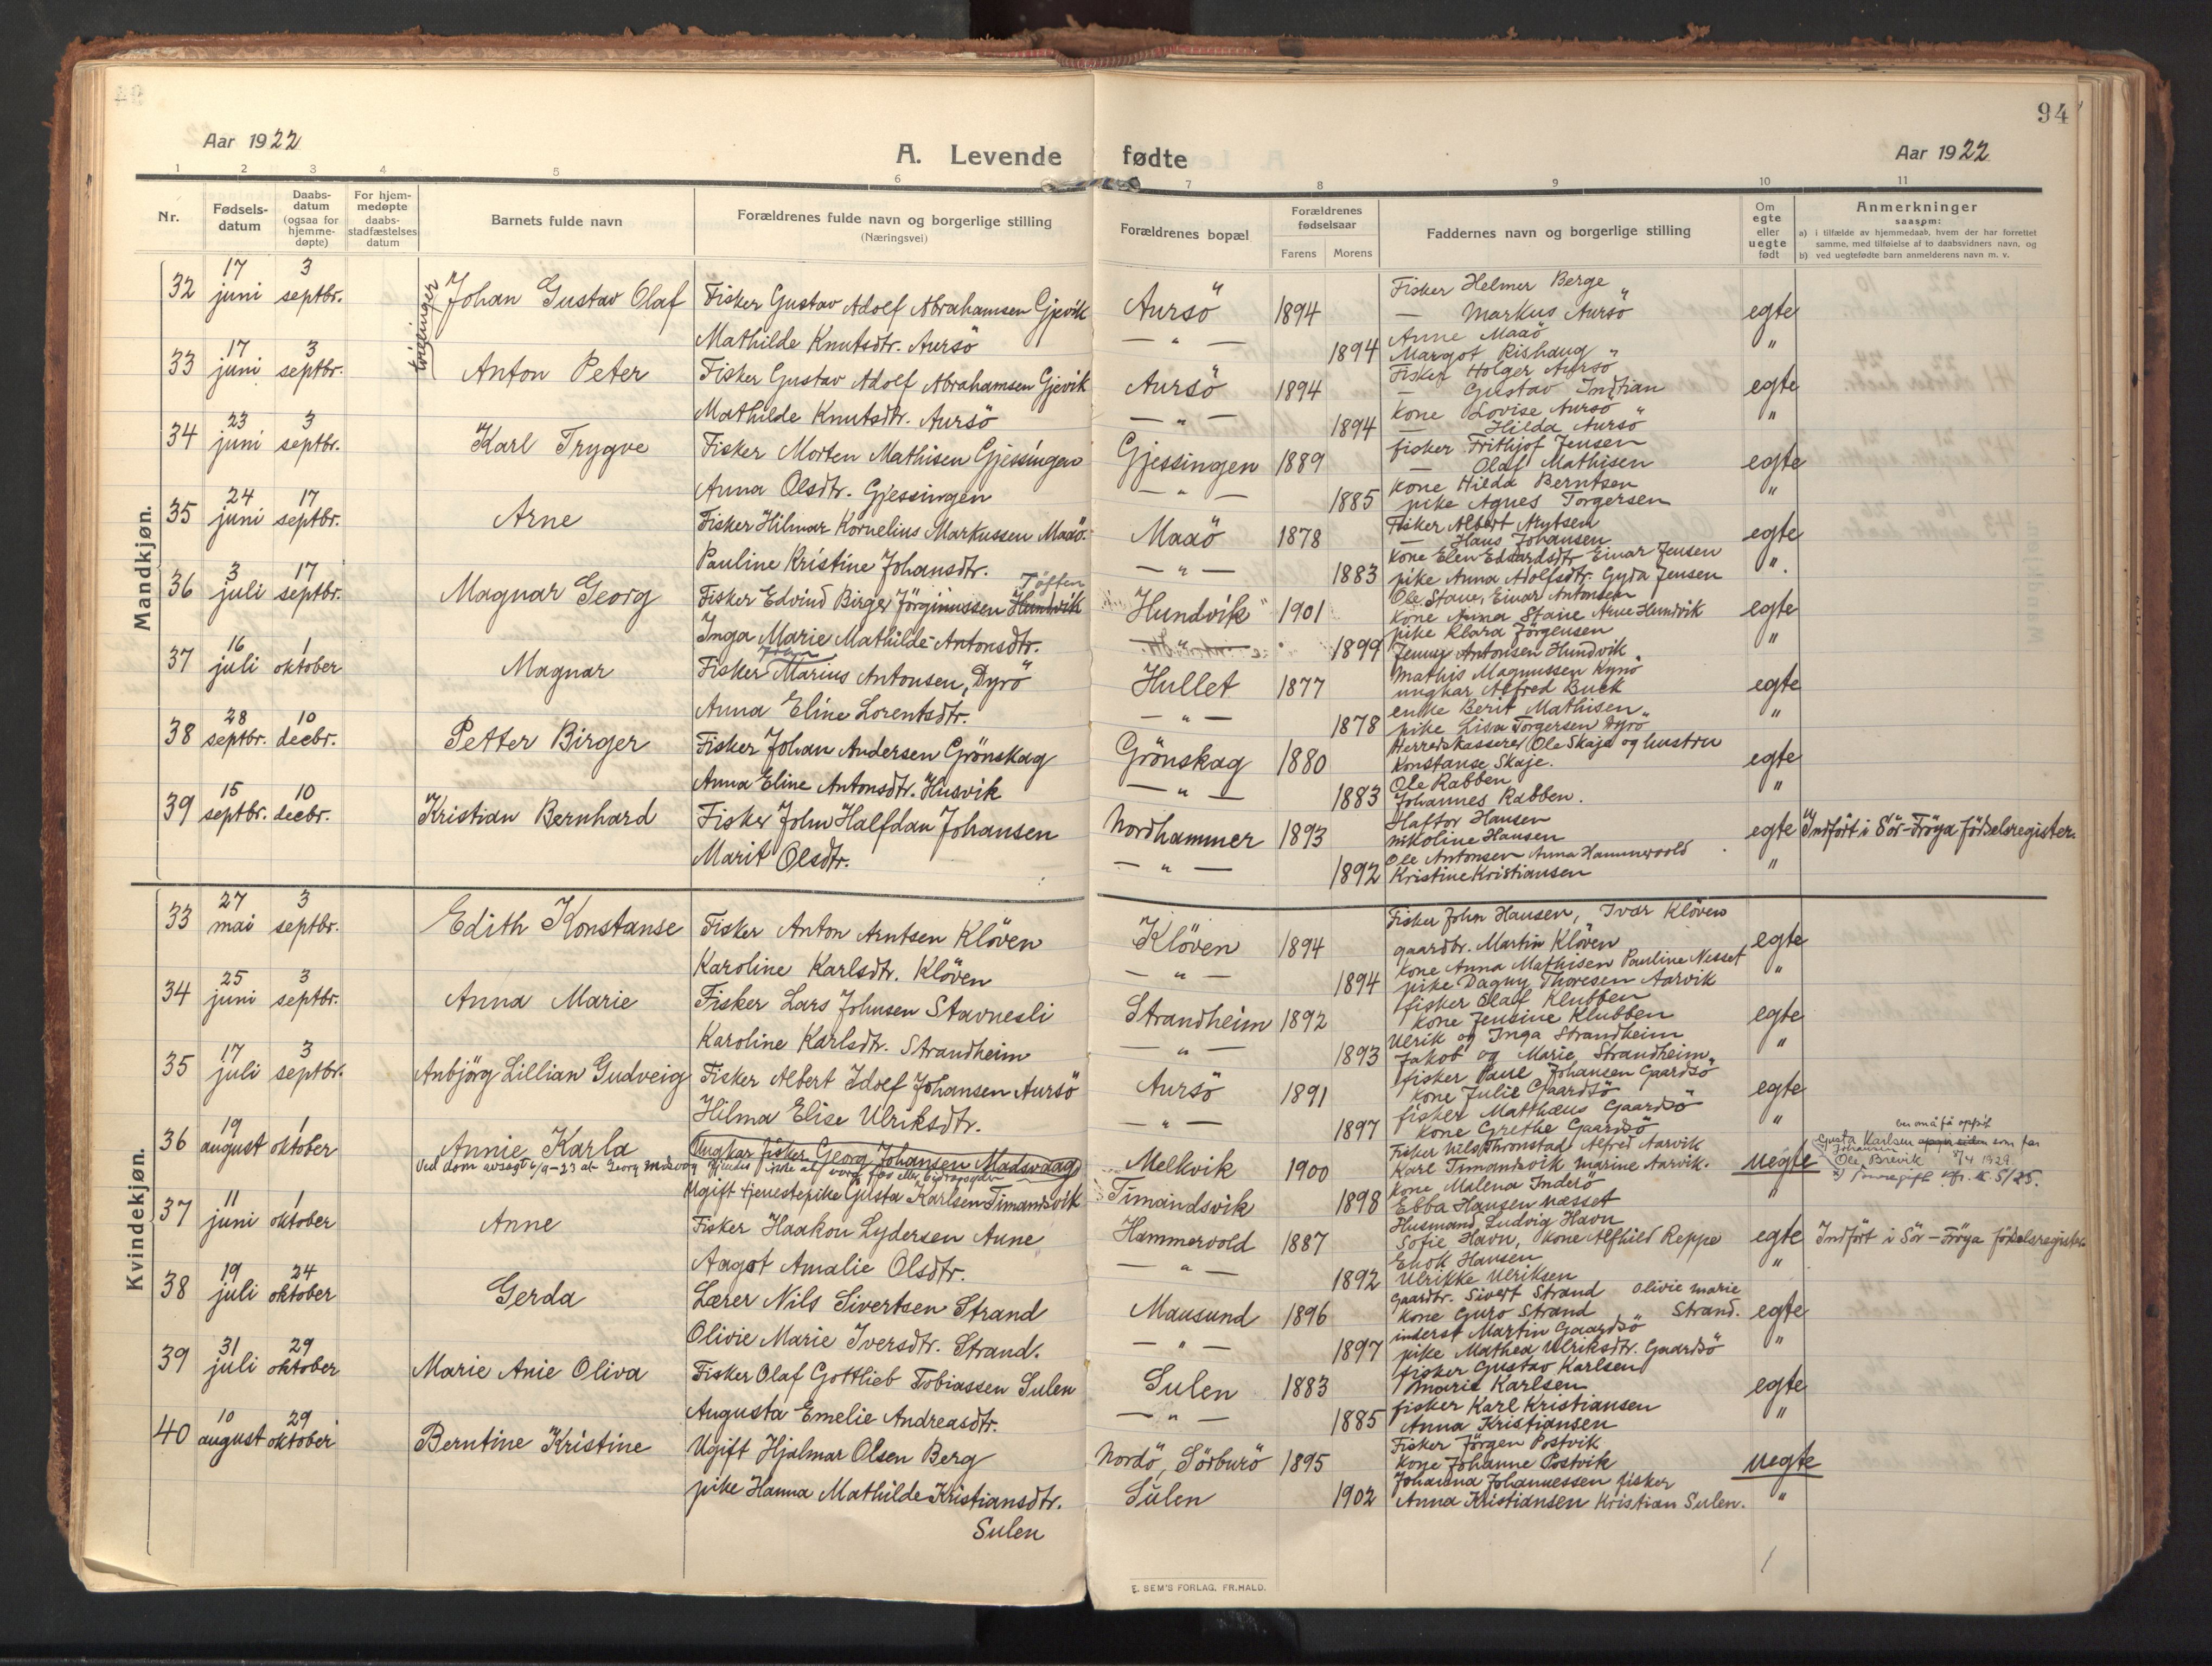 94
Aar 1922
A. Levende fødte
Aar 1922
1 2 3 4 5 6 7 8 9 10 11
Nr.
Fødsels-datum
Daabs-datum (ogsaa for hjemme-døpte)
For hjem-medøpte daabs-stadfæstelses datum
Barnets fulde navn
Forældrenes fulde navn og borgerlige stilling
(Næringsvei)
Forældrenes bopæl
Forældrenes fødselsaar
Farens Morens
Faddernes navn og borgerlige stilling
Om egte eller uegte født
Anmerkninger
saasom:
a) i tilfælde av hjemmedaab, hvem der har forrettet
samme, med tilføielse af to daabsvidners navn, og
b) ved uegtefødte barn anmelderens navn m. v.
Mandkjøn.
tvillinger
32 17 juni 3 septbr. Johan Gustav Olaf Fisker Gustav Adolf Abrahamsen Gjevik Aursö 1894 egte
Mathilde Knutsdtr. Aursö — " — 1894 "
Fisker Helmer Berge
— Markus Aursö
Anne Maaö
Margot Rishaug
33 17 juni 3 septbr. Anton Peter Fisker Gustav Adolf Abrahamsen Gjevik Aursö 1894 egte
Mathilde Knutsdtr. Aursö — " — 1894 "
Fisker Holger Aursö
— Gustav Indtian
Kone Lovise Aursö
— Hilda Aursö
34 23 juni 3 septbr. Karl Trygve Fisker Morten Mathisen Gjessingen Gjessingen 1889 egte
Anna Olsdtr. Gjessingen — " — 1885 "
fisker Frithjof Jensen
— Olaf Mathisen
Kone Hilda Berntsen
pike Agnes Torgersen
35 24 juni 17 septbr. Arne Fisker Hilmar Kornelius Markussen Maaö. Maaö 1878 egte
Pauline Kristine Johansdtr. — " — 1883 "
Fisker Albert Arntsen
— Hans Johansen
Kone Elen Edvardsdtr Einar Jensen
pike Anna Adolfsdtr. Gyda Jensen
36 3 juli 17 septbr. Magnar Georg Fisker Edvind Birger Jörginussen Hundvik Töften Hundvik 1901 egte
Inga Marie Mathilde Antonsdtr. 1899 "
Ole Stave, Einar Antonsen
Kone Anna Stave Arne Hundvik
pike Klara Jörgensen
Jenny Antonsen Hundvik
37 16 juli 1 oktober Magnar Fisker Johan Marius Antonsen, Dyrö Hullet 1877 egte
Anna Eline Lorentsdtr. — " — 1878 "
Mathis Magnussen Kynö
ungkar Alfred Buck
enke Berit Mathisen
pike Lisa Torgersen Dyrö
38 28 septbr. 10 decbr. Petter Birger Fisker Johan Andersen Grönskag Grönskag 1880 egte
Anna Eline Antonsdtr. Husvik — " — 1883 "
Herredskasserer Ole Skaje og hustru
Konstanse Skaje.
Ole Rabben
Johannes Rabben.
39 15 septbr. 10 decbr. Kristian Bernhard Fisker John Halfdan Johansen Nordhammer 1893 egte Indført i Sör-Fröya födselsregister.
Marit Olsdtr. — " — 1892 "
Haftor Hansen
nikoline Hansen
Ole Antonsen Anna Hammervold
Kristine Kristiansen
Kvindekjøn.
33 27 mai 3 septbr. Edith Konstanse Fisker Anton Arntsen Klöven Klöven 1894 egte
Karoline Karlsdtr. Klöven — " — 1894 "
Fisker John Hansen, Ivar Klöven
gaardbr. Martin Klöven
Kone Anna Mathisen Pauline Nesset
pike Dagny Thoresen Aarvik
34 25 juni 3 septbr. Anna Marie Fisker Lars Johnsen Stavnesli Strandheim 1892 egte
Karoline Karlsdtr. Strandheim — " — 1893 "
fisker Olaf Klubben
Kone Jensine Klubben
Ulrik og Inga Strandheim
Jakob og Marie Strandheim
35 17 juli 3 septbr. Anbjörg Lillian Gudveig Fisker Albert Idolf Johansen Aursö Aursö 1891 egte
Hilma Elise Ulriksdtr. — " — 1897 "
fisker Paul Johansen Gaardsö
Kone Julie Gaardsö
fisker Matthæus Gaardsö
Kone Grethe Gaardsö
36 19 august 1 oktober Annie Karla Ungkar fisker Georg Johansen Madsvaag Melkvik 1900 uegte
Ved dom avsagt 6/9-23 at Georg Madsvåg
Ugift tjenestepike Gusta Karlsen Timandsvik Timandsvik 1898 "
Fisker Nils Thronstad Alfred Aarvik
Karl Timandsvik Marine Aarvik.
Kone Malena Inderö
Ebba Hansen Næsset
Gusta Karlsen som far
Johansen
Ole Brevik 4 1929
37 11 juni 1 oktober Anne Fisker Haakon Lydersen Aune Hammervold 1887 egte Indført i Sör-Fröya födselsregister
Aagot Amalie Olsdtr. — " — 1892 "
Husmand Ludvig Havn
Sofie Havn, Kone Alfhild Reppe
Enok Hansen
Ulrikke Ulriksen
38 19 juli 24 oktober Gerda Lærer Nils Sivertsen Strand Mausund 1896 egte
Olivie Marie Iversdtr. Strand. — " — 1897 "
Gaardbr. Sivert Strand Olivie Marie
Kone Guro Strand Strand.
inderst Martin Gaardsö
pike Mathea Ulriksdtr. Gaardsö
39 31 juli 29 oktober Marie Anie Oliva Fisker Olaf Gottlieb Tobiassen Sulen Sulen 1883 egte
Augusta Emelie Andreasdtr. — " — 1885 "
fisker Gustav Karlsen
Marie Karlsen
fisker Karl Kristiansen
Anna Kristiansen
40 10 august 29 oktober Berntine Kristine Ugift Hjalmar Olsen Berg Nordö, Sörburö 1895 uegte
pike Hanna Mathilde Kristiansdtr. Sulen 1902 "
Sulen
Fisker Jörgen Postvik
Kone Johanne Postvik
Johanna Johannessen fisker
Anna Kristiansen Kristian Sulen.
E. SEM'S FORLAG, FR.HALD.